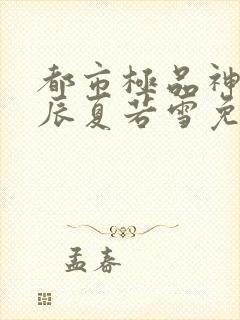 都市極品神
辰夏若雪免
孟春